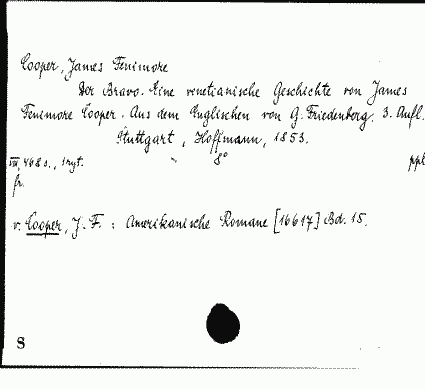 Cooper, James Fenimore
Der Bravo. Eine venetianische Geschichte von James
Fenimore Cooper. Aus dem Englischen von G. Friedenberg. 3. Aufl.
Stuttgart, Hoffmann, 1853.
VIII, 468 s., 1 ryt. 8° ppł
fr.
v. Cooper, J. F. : Amerikanische Romane [16617] Bd. 15.
S